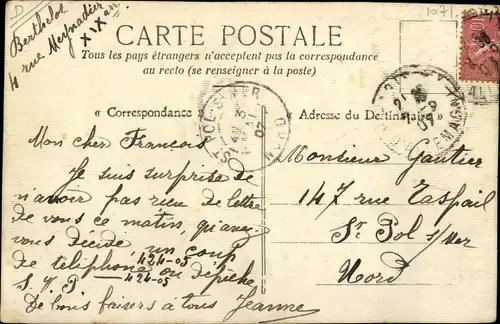 Berthelot
4 rue Meynadier
XIXem
1071
CARTE POSTALE
Tous les pays étrangers n'acceptent pas la correspondance
au recto (se renseigner à la poste)
« Correspondance »
« Adresse du Destinataire »
Mon cher François
Je suis surprise de
n'avoir pas reçu de lettre
de vous ce matin, qu'avez
vous décidé, un coup
de téléphone ou dépêche
424-05
S.V.P 424-05
De bons baisers à tous Jeanne
Monsieur Gautier
147 rue Raspail
St Pol s/mer
Nord